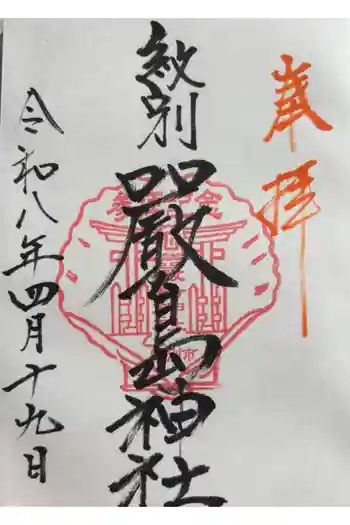 奉拝
紋別
厳島神社
令和八年四月十九日